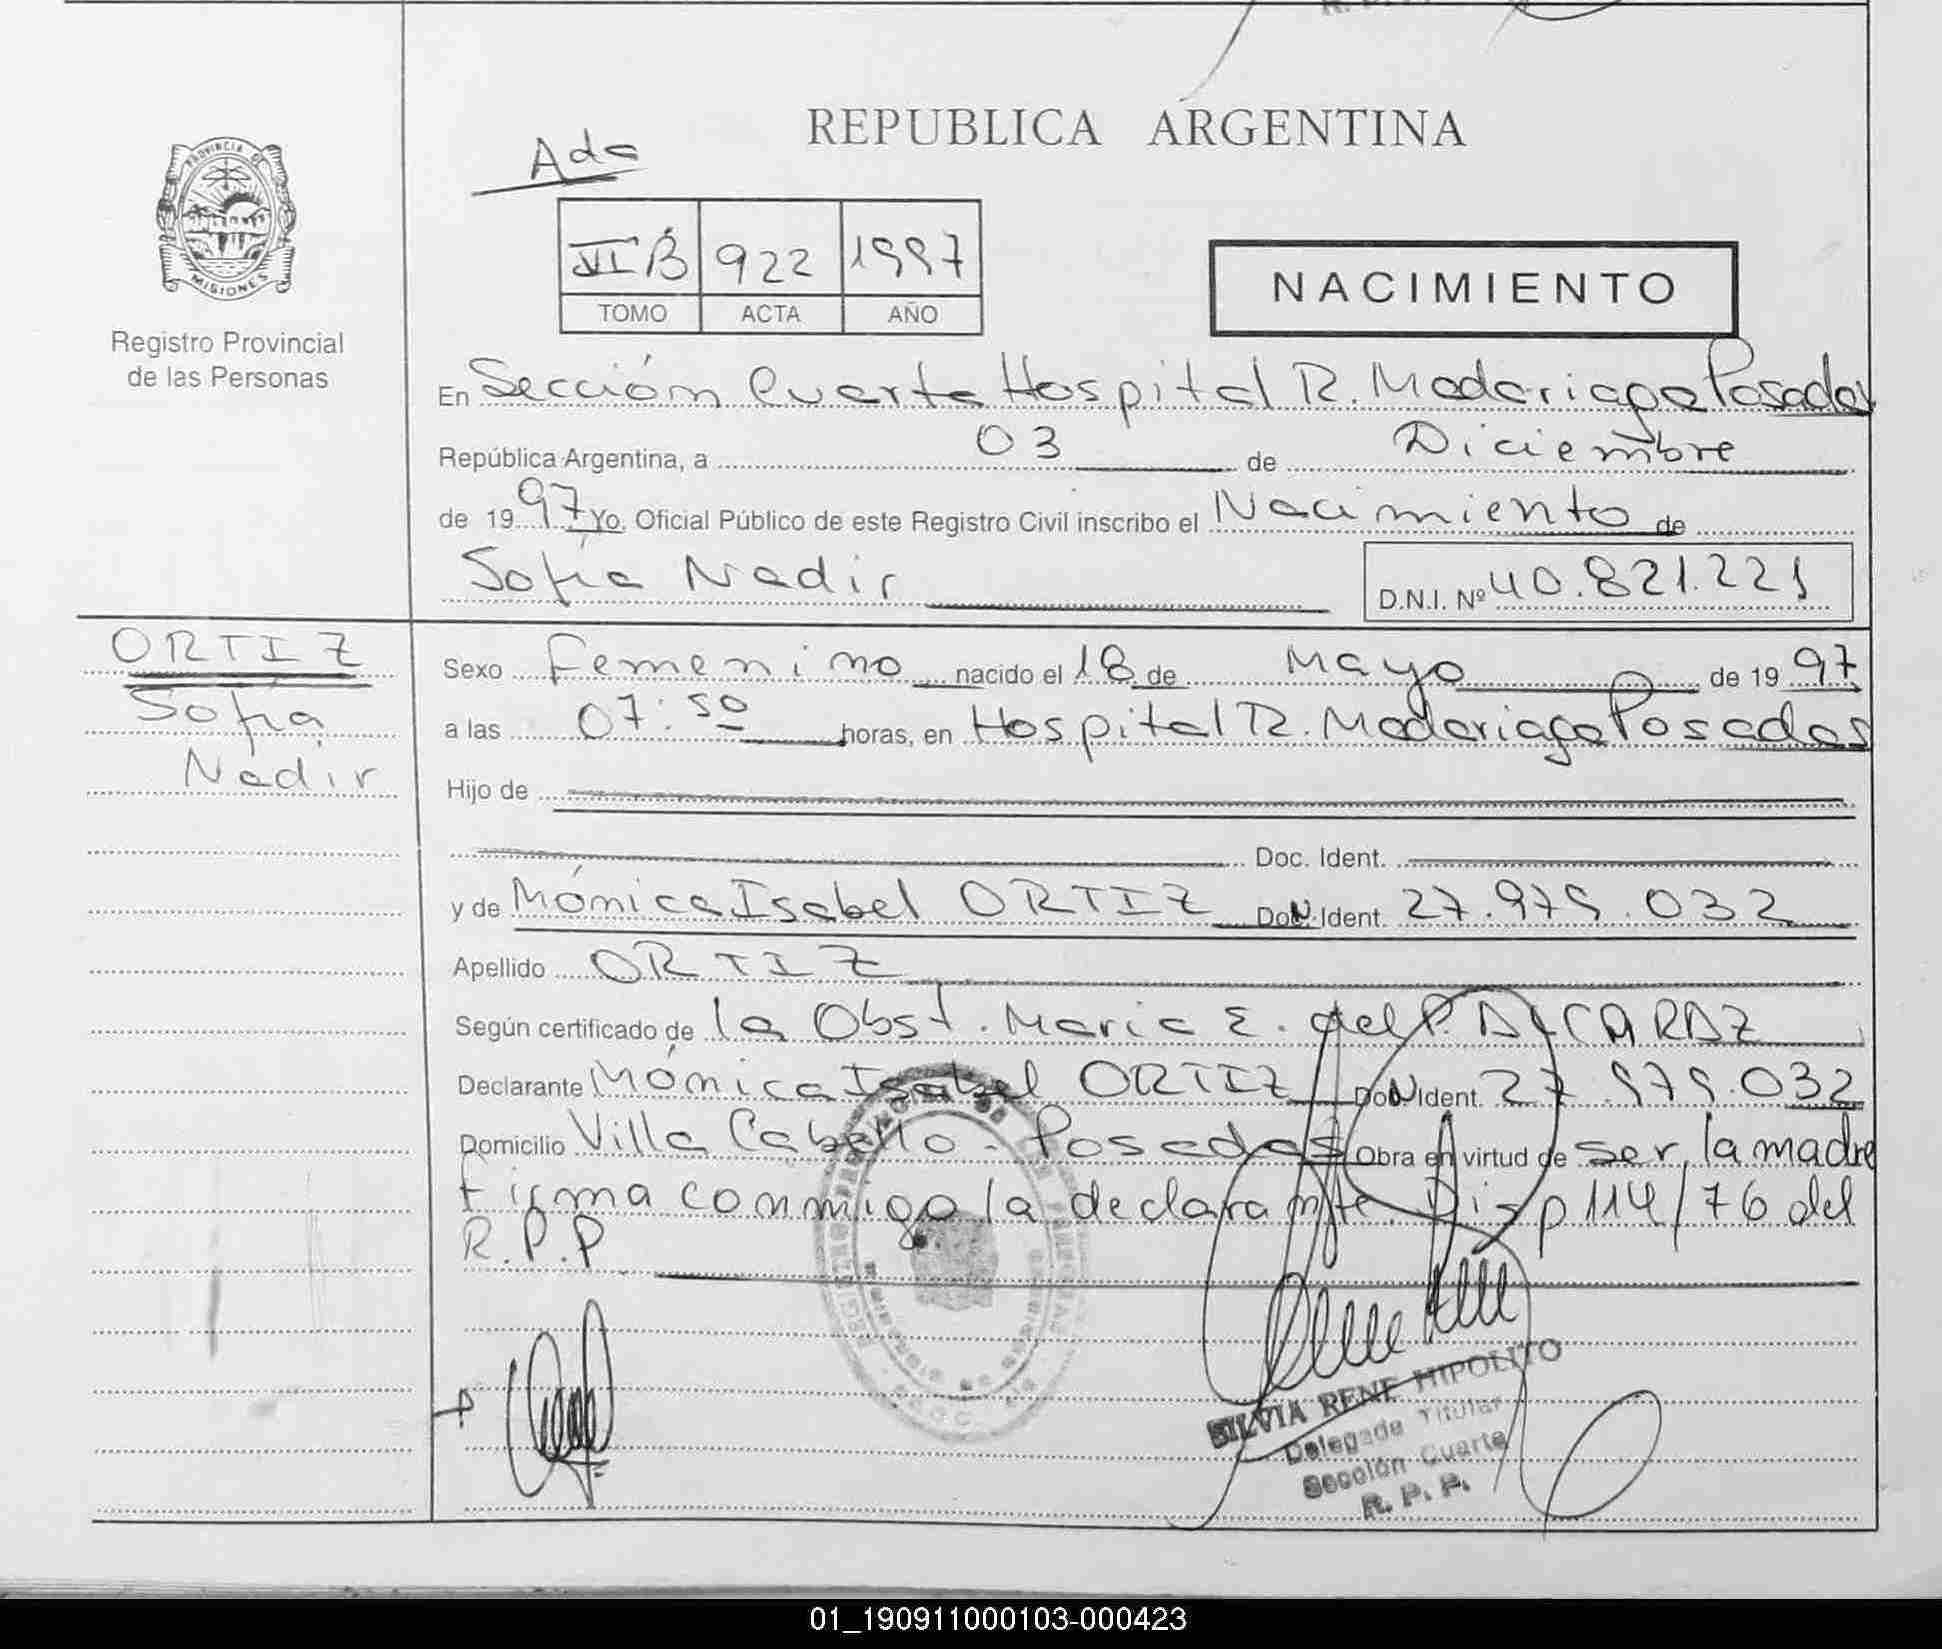 REPUBLICA ARGENTINA
PROVINCIA DE
MISIONES
Registro Provincial
de las Personas
Ada
VI B 922 1997
TOMO ACTA AÑO
NACIMIENTO
En Sección Cuarta Hospital R. Madariaga Posadas
República Argentina, a 03 de Diciembre
de 1997 Yo, Oficial Público de este Registro Civil inscribo el Nacimiento de
Sofía Nadir D.N.I. Nº 40.821.221
ORTIZ
Sofía
Nadir
Sexo Femenino nacido el 18 de Mayo de 1997
a las 07:50 horas, en Hospital R. Madariaga Posadas
Hijo de
Doc. Ident.
y de Mónica Isabel ORTIZ Doc. Ident. 27.979.032
Apellido ORTIZ
Según certificado de la Obst. Maria E. del P. ALCARAZ
Declarante Mónica Isabel ORTIZ Doc. Ident. 27.979.032
Domicilio Villa Cabello - Posadas Obra en virtud de ser la madre
Firma conmigo la declarante. Disp 114/76 del
R.P.P
SILVIA RENE HIPOLITO
Delegada Titular
Sección Cuarta
R. P. P.
01_190911000103-000423